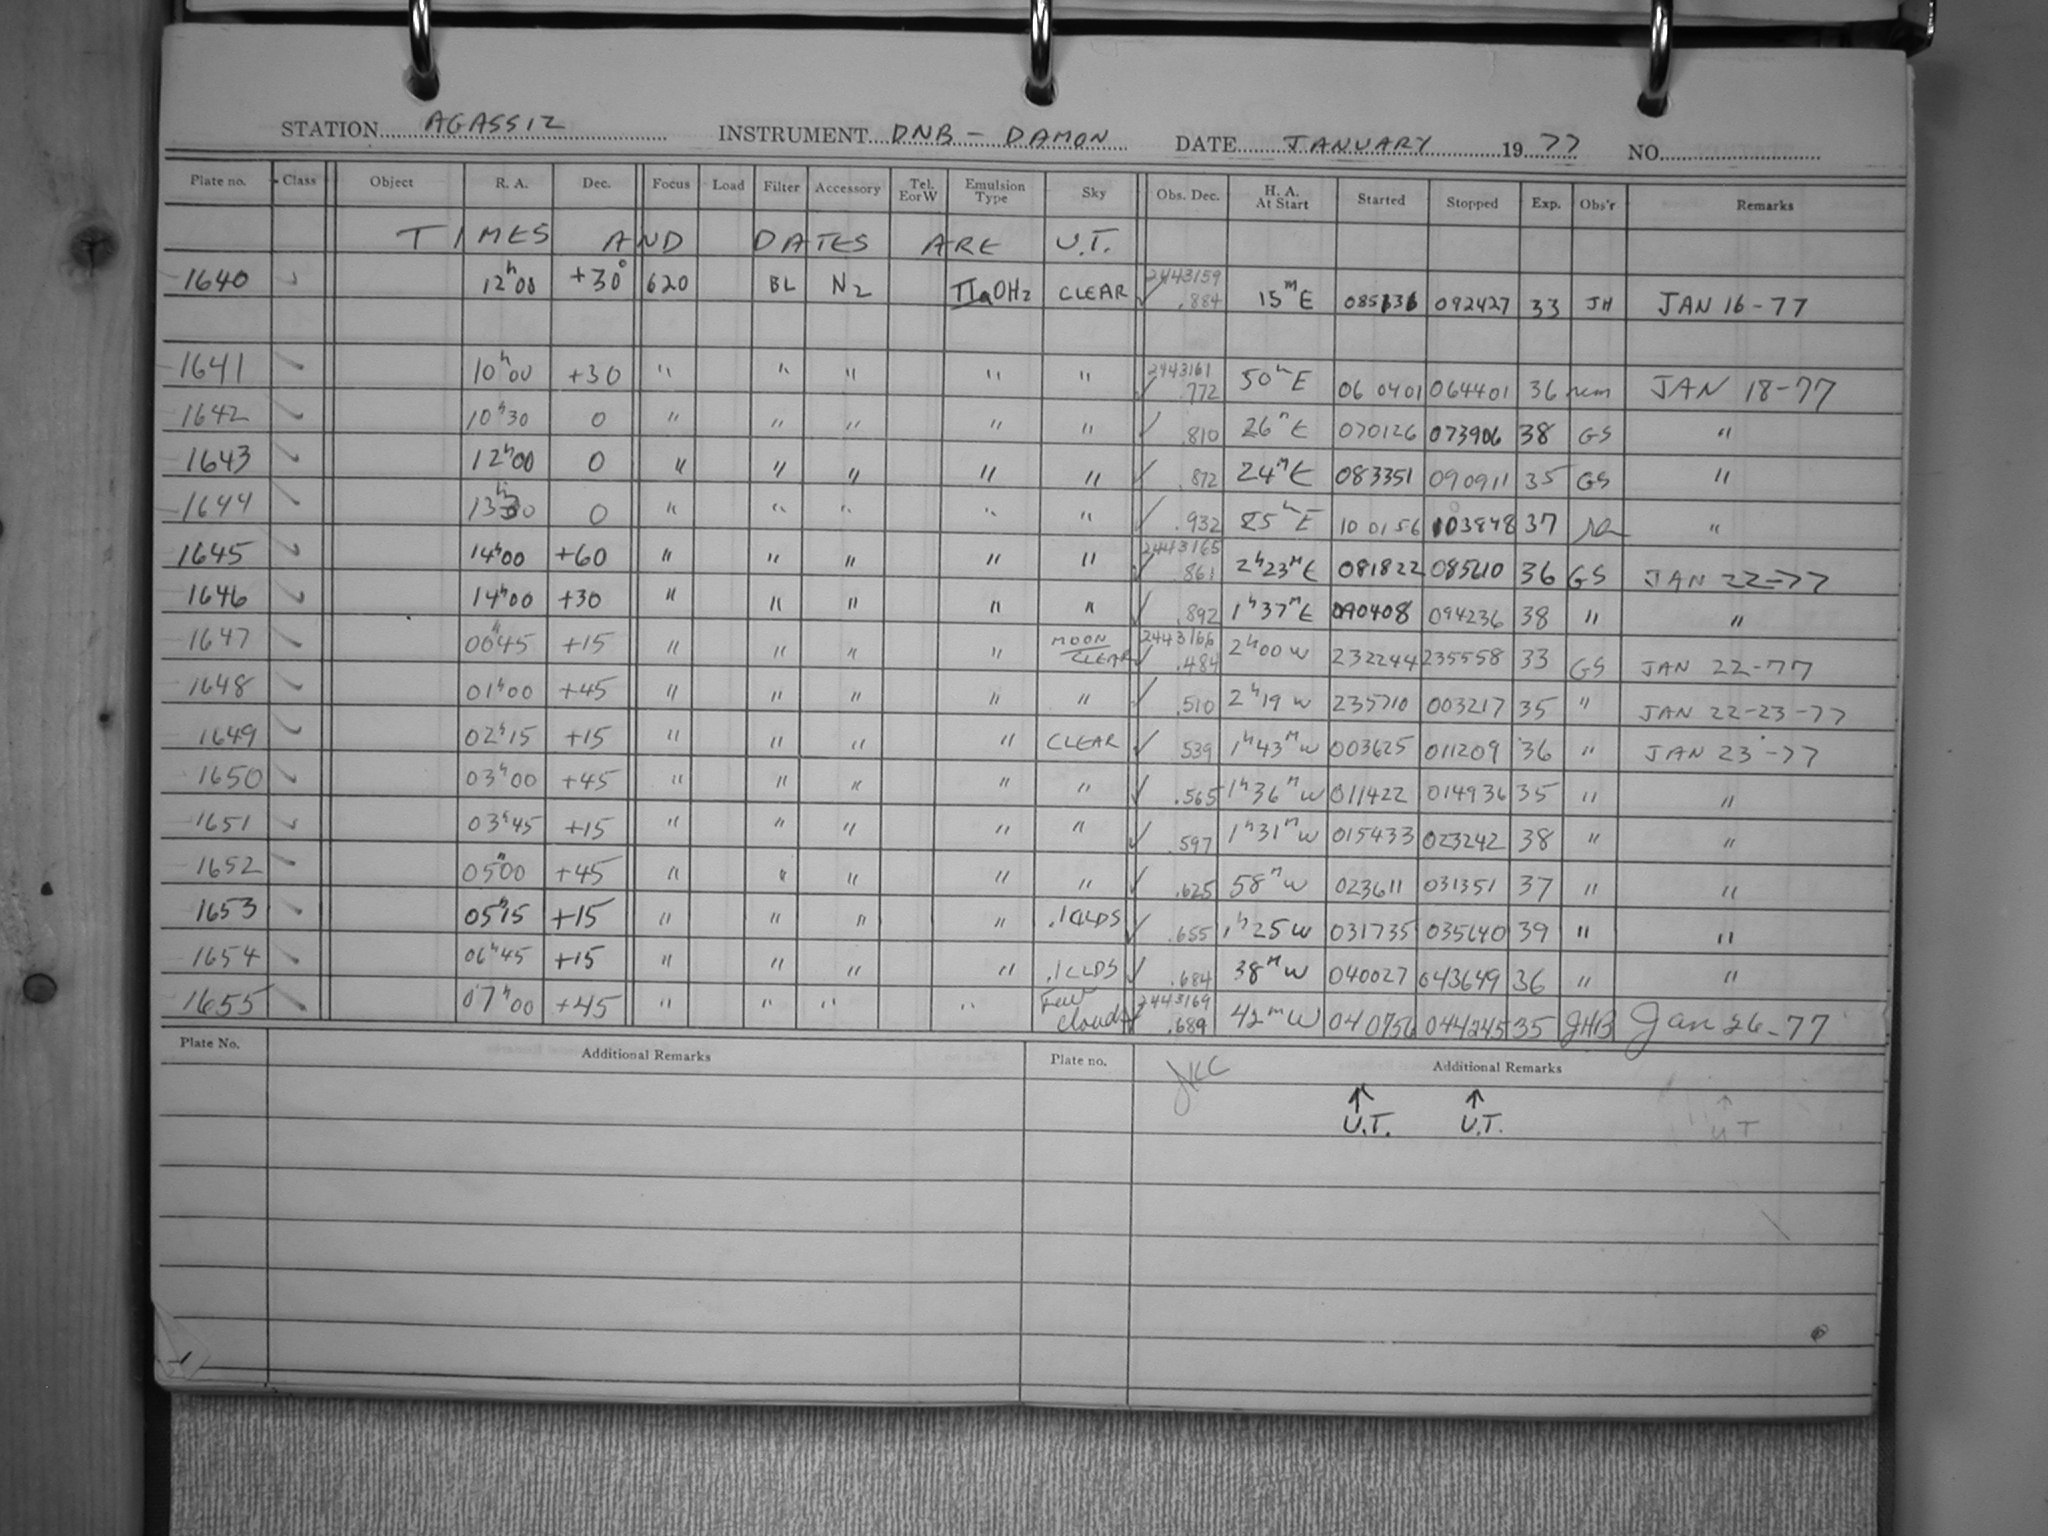 STATION AGASSIZ INSTRUMENT DNB - DAMON DATE JANUARY 19 77 NO.
Plate no. Class Object R. A. Dec. Focus Load Filter Accessory Tel. E or W Emulsion Type Sky Obs. Dec. H. A. At Start Started Stopped Exp. Obs'r Remarks
TIMES AND DATES ARE U.T.
1640 ✓ 12h00 +30° 620 BL N2 IIaOH2 CLEAR 2443159 ✓ .884 15m E 085136 092427 33 JH JAN 16-77
1641 ✓ 10h00 +30 " " " " " 2443161 ✓ .772 50m E 060401 064401 36 JAN 18-77
1642 ✓ 10h30 0 " " " " " ✓ .810 26m E 070126 073906 38 GS "
1643 ✓ 12h00 0 " " " " " ✓ .872 24m E 083351 090911 35 GS "
1644 ✓ 13h30 0 " " " " " ✓ .932 25m E 100156 103848 37 "
1645 ✓ 14h00 +60 " " " " " 2443165 ✓ .861 2h23m E 081822 085610 36 GS JAN 22-77
1646 ✓ 14h00 +30 " " " " " ✓ .892 1h37m E 090408 094236 38 " "
1647 ✓ 00h45 +15 " " " " MOON CLEAR 2443166 ✓ .484 2h00 W 232244 235558 33 GS JAN 22-77
1648 ✓ 01h00 +45 " " " " " ✓ .510 2h19 W 235710 003217 35 " JAN 22-23-77
1649 ✓ 02h15 +15 " " " " CLEAR ✓ 539 1h43m W 003625 011209 36 " JAN 23-77
1650 ✓ 03h00 +45 " " " " " ✓ .565 1h36m W 011422 014936 35 " "
1651 ✓ 03h45 +15 " " " " " ✓ .597 1h31m W 015433 023242 38 " "
1652 ✓ 05h00 +45 " " " " " ✓ .625 58m W 023611 031351 37 " "
1653 ✓ 05h15 +15 " " " " .1 CLDS ✓ .655 1h25 W 031735 035640 39 " "
1654 ✓ 06h45 +15 " " " " .1 CLDS ✓ .684 38m W 040027 043649 36 " "
1655 ✓ 07h00 +45 " " " " Few clouds 2443169 ✓ .689 42m W 040756 044245 35 JHB Jan 26-77
Plate No. Additional Remarks Plate no. JKC Additional Remarks
↑ ↑ ↑
U.T. U.T. UT